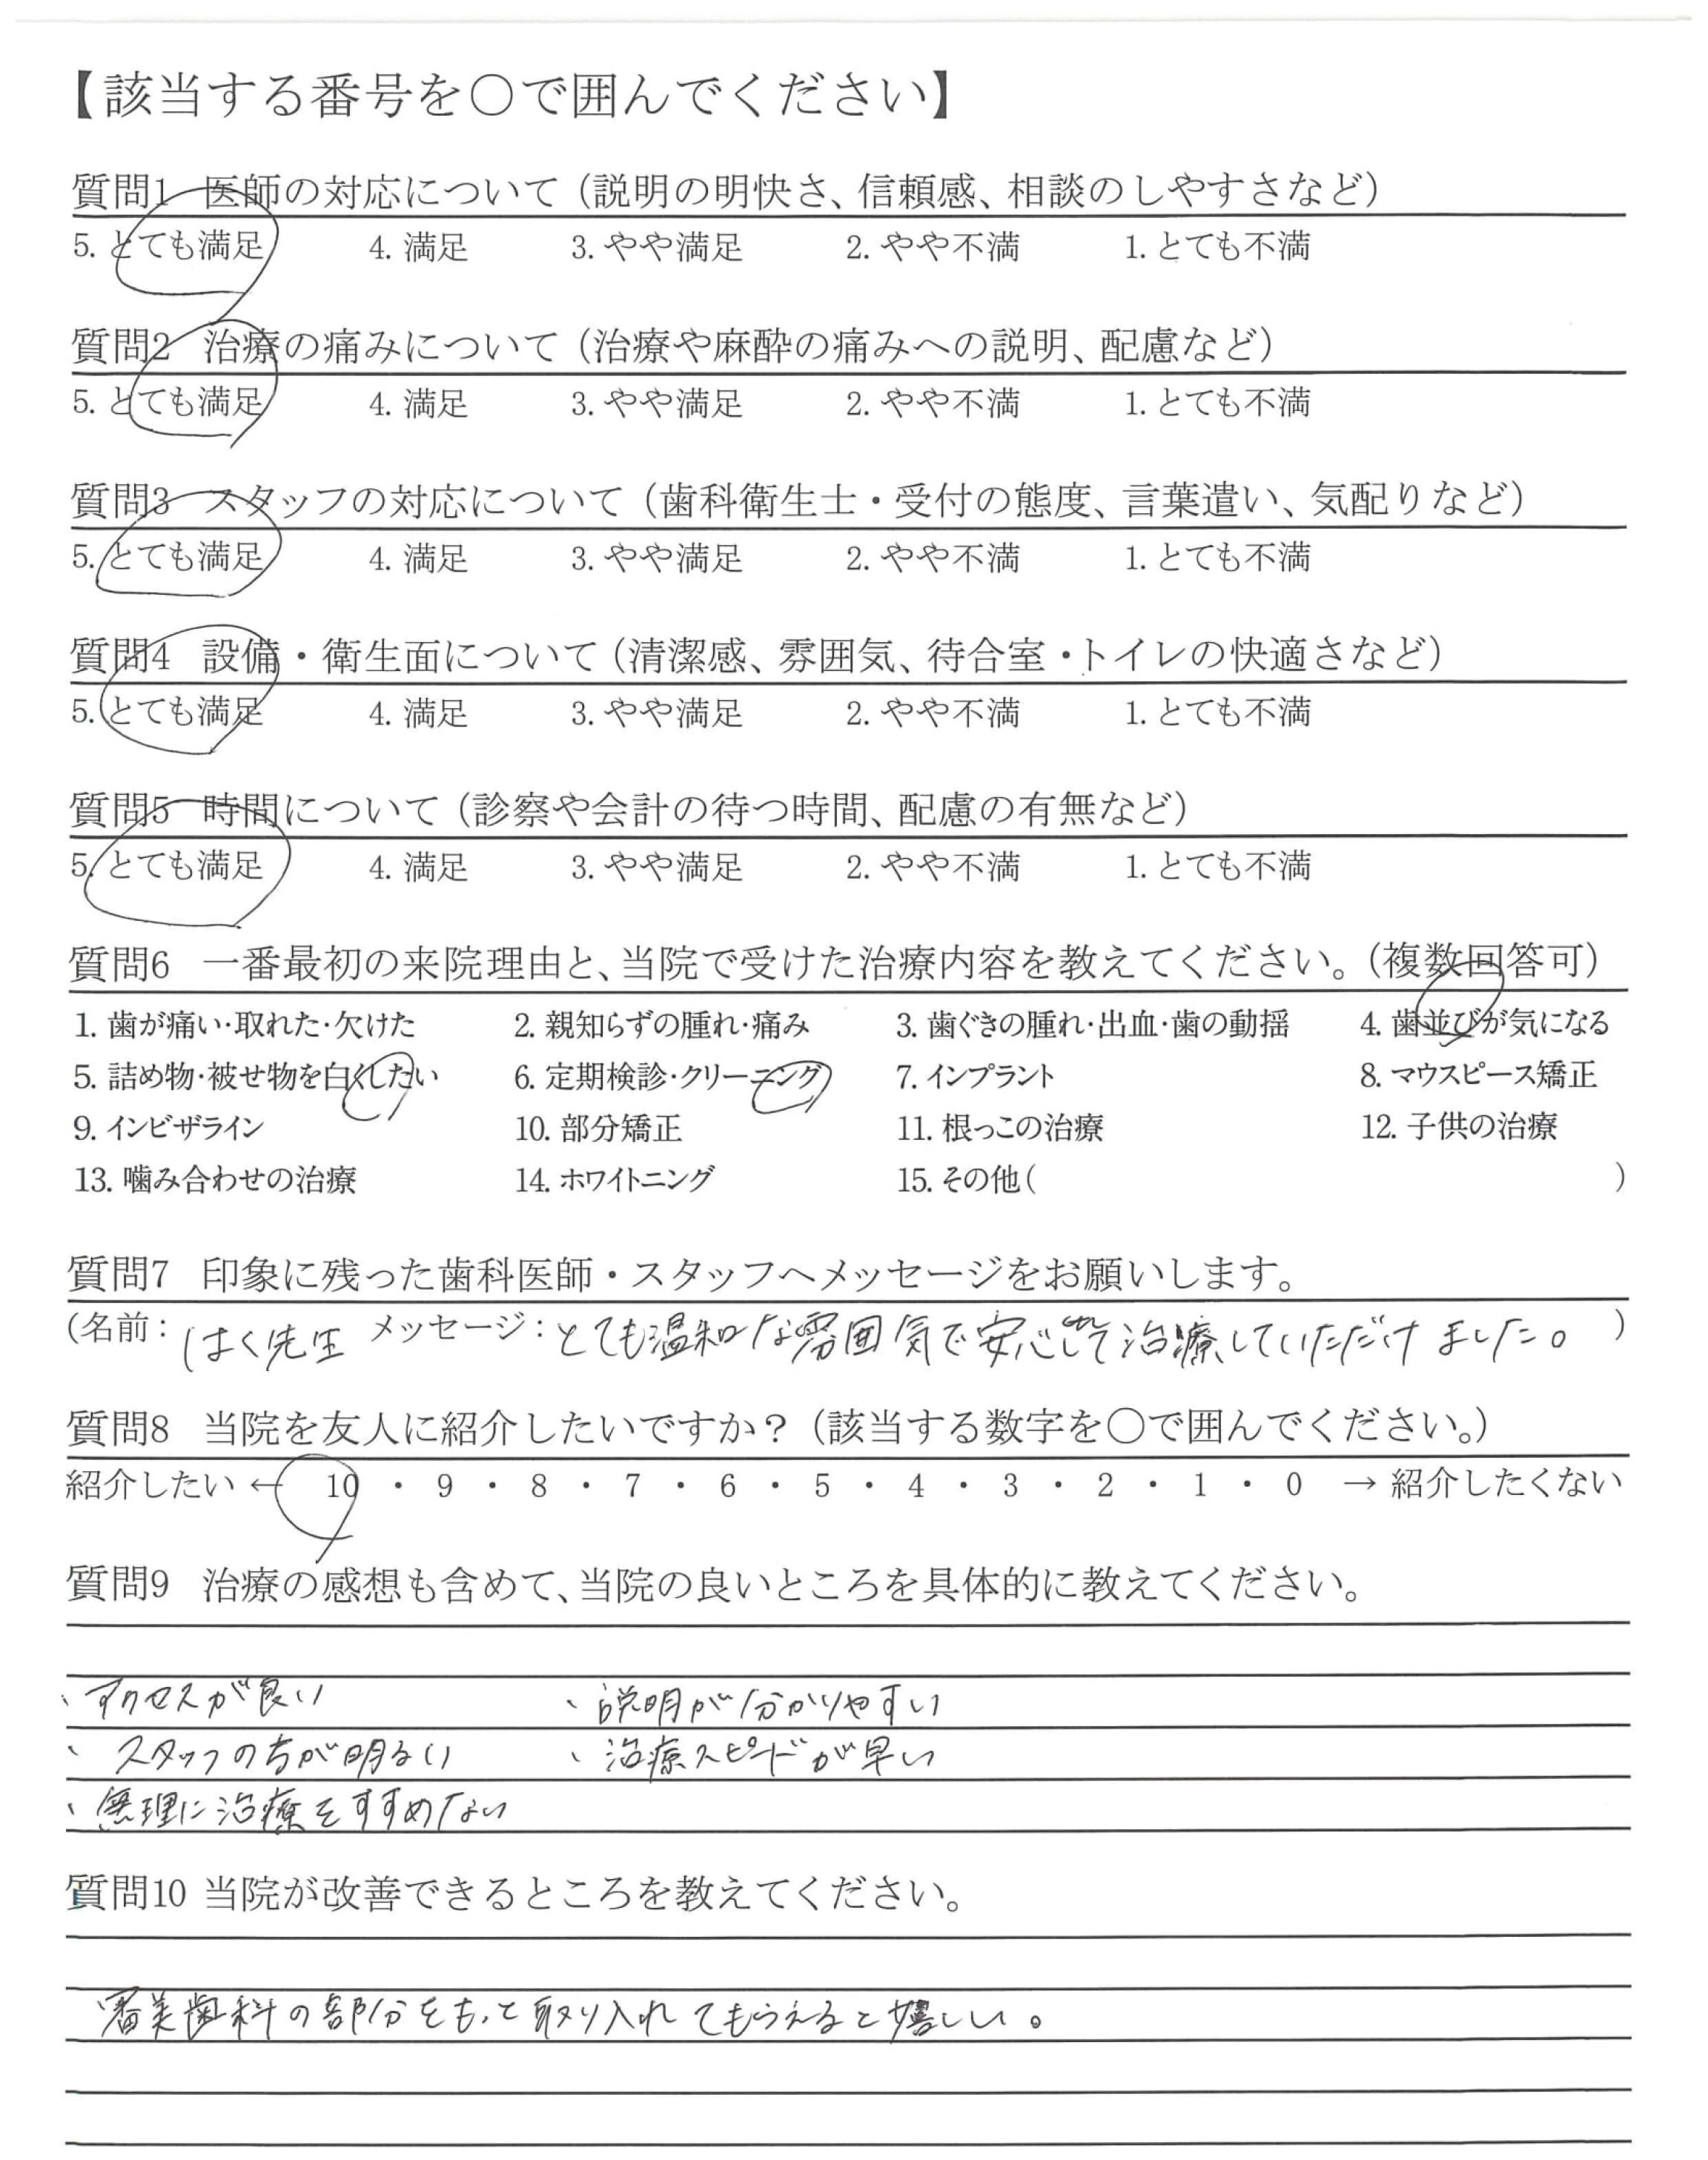 【該当する番号を○で囲んでください】
質問1 医師の対応について（説明の明快さ、信頼感、相談のしやすさなど）
5. とても満足 4. 満足 3. やや満足 2. やや不満 1. とても不満
質問2 治療の痛みについて（治療や麻酔の痛みへの説明、配慮など）
5. とても満足 4. 満足 3. やや満足 2. やや不満 1. とても不満
質問3 スタッフの対応について（歯科衛生士・受付の態度、言葉遣い、気配りなど）
5. とても満足 4. 満足 3. やや満足 2. やや不満 1. とても不満
質問4 設備・衛生面について（清潔感、雰囲気、待合室・トイレの快適さなど）
5. とても満足 4. 満足 3. やや満足 2. やや不満 1. とても不満
質問5 時間について（診察や会計の待つ時間、配慮の有無など）
5. とても満足 4. 満足 3. やや満足 2. やや不満 1. とても不満
質問6 一番最初の来院理由と、当院で受けた治療内容を教えてください。（複数回答可）
1. 歯が痛い・取れた・欠けた 2. 親知らずの腫れ・痛み 3. 歯ぐきの腫れ・出血・歯の動揺 4. 歯並びが気になる
5. 詰め物・被せ物を白くしたい 6. 定期検診・クリーニング 7. インプラント 8. マウスピース矯正
9. インビザライン 10. 部分矯正 11. 根っこの治療 12. 子供の治療
13. 噛み合わせの治療 14. ホワイトニング 15. その他（ ）
質問7 印象に残った歯科医師・スタッフへメッセージをお願いします。
（名前：はく先生 メッセージ：とても温和な雰囲気で安心して治療していただけました。）
質問8 当院を友人に紹介したいですか？（該当する数字を○で囲んでください。）
紹介したい ← 10 ・ 9 ・ 8 ・ 7 ・ 6 ・ 5 ・ 4 ・ 3 ・ 2 ・ 1 ・ 0 → 紹介したくない
質問9 治療の感想も含めて、当院の良いところを具体的に教えてください。
、アクセスが良い 、説明が分かりやすい
、スタッフの方が明るい 、治療スピードが早い
、無理に治療をすすめない
質問10 当院が改善できるところを教えてください。
審美歯科の部分をもっと取り入れてもらえると嬉しい。